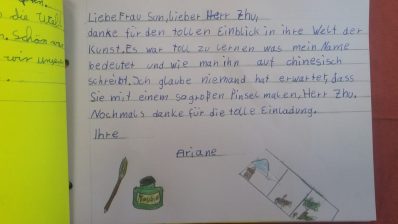 die Welt
n. Schön
Liebe Frau Sun, lieber Herr Zhu,
danke für den tollen Einblick in ihre Welt der
Kunst. Es war toll zu lernen was mein Name
bedeutet und wie man ihn auf chinesisch
schreibt. Ich glaube niemand hat erwartet, dass
Sie mit einem so großen Pinsel malen, Herr Zhu.
Nochmals danke für die tolle Einladung.
Ihre
Ariane